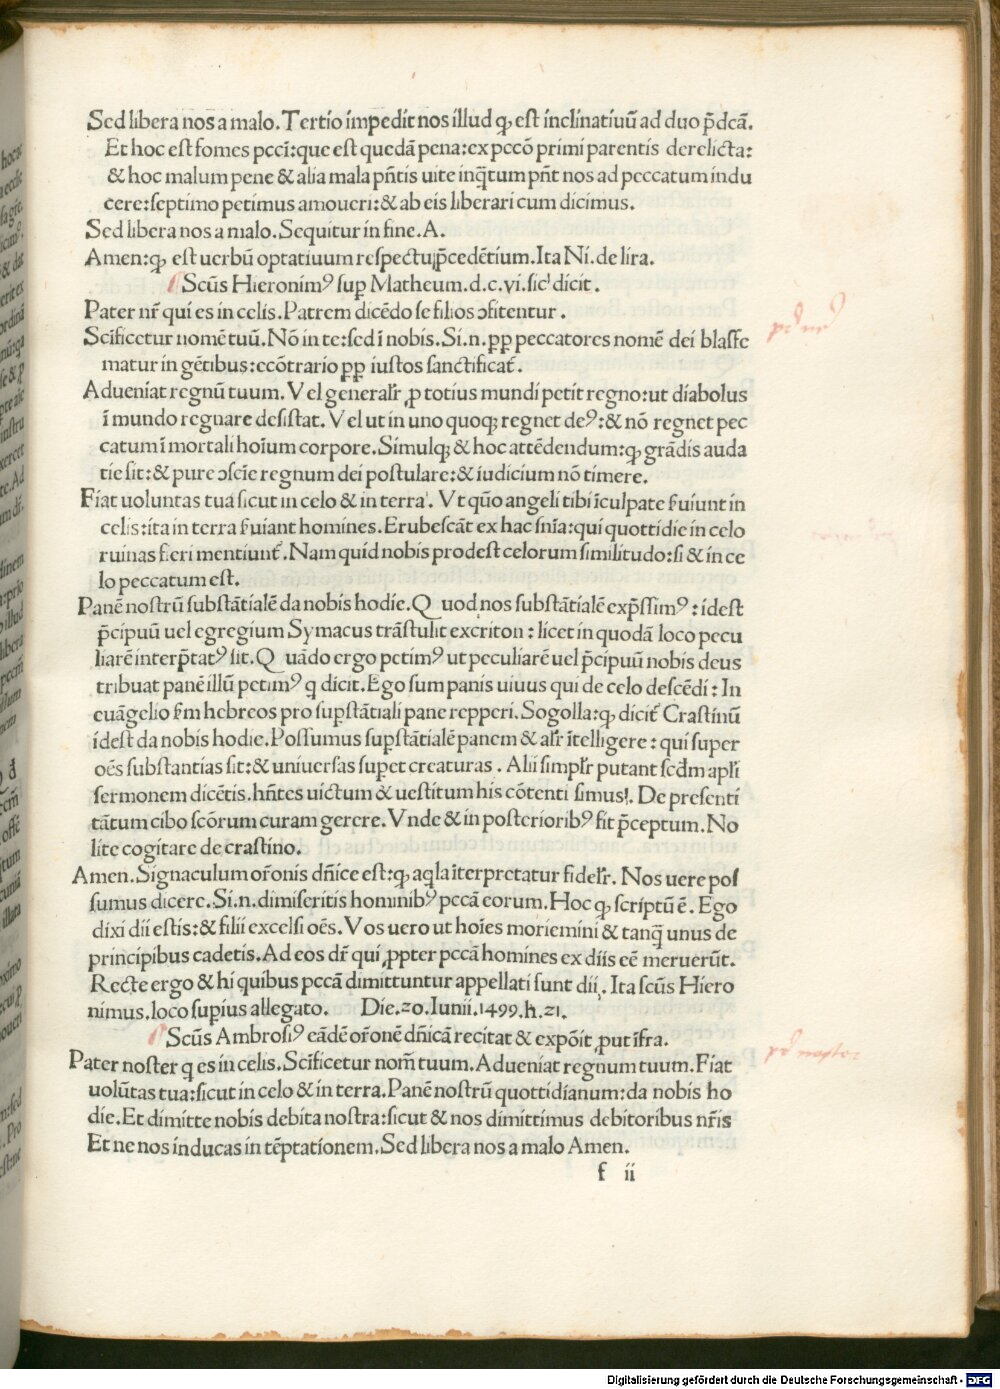 Sed libera nos a malo. Tertio impedit nos illud ꝙ est inclinatiuũ ad duo p̃dcã.
Et hoc est fomes pccĩ: que est quedã pena: ex pccõ primi parentis derelicta:
& hoc malum pene & alia mala pñtis uite inq̃tum pñt nos ad peccatum indu
cere: septimo petimus amoueri: & ab eis liberari cum dicimus.
Sed libera nos a malo. Sequitur in fine. A.
Amen: ꝙ est uerbũ optatiuum respectu p̃cedẽtium. Ita Ni. de lira.
Scũs Hieronimꝰ suꝑ Matheum. d.c.vi. sic dicit.
Pater nr̃ qui es in celis. Patrem dicẽdo se filios ↄfitentur.
Scificetur nomẽ tuũ. Nõ in te: sed ĩ nobis. Si. n. ꝓꝑ peccatores nomẽ dei blasfe
matur in gẽtibus: ecõtrario ꝓꝑ iustos sanctificat᷑.
Adueniat regnũ tuum. Vel generalr̃ ꝓ totius mundi petit regno: ut diabolus
ĩ mundo regnare desistat. Vel ut in uno quoqꝫ regnet deꝰ: & nõ regnet pec
catum ĩ mortali hoĩum corpore. Simulqꝫ & hoc attẽdendum: ꝙ grãdis auda
tie sit: & pure ↄscĩe regnum dei postulare: & iudicium nõ timere.
Fiat uoluntas tua sicut in celo & in terra. Vt quõ angeli tibi ĩculpate ẜuiunt in
celis: ita in terra ẜuiant homines. Erubescãt ex hac sñia: qui quottidie in celo
ruinas fieri mentiunt᷑. Nam quid nobis prodest celorum similitudo: si & in ce
lo peccatum est.
Panẽ nostrũ substãtialẽ da nobis hodie. Q uod nos substãtialẽ exp̃ssimꝰ: idest
p̃cipuũ uel egregium Symacus trãstulit excriton: licet in quodã loco pecu
liarẽ interp̃tatꝰ sit. Q uãdo ergo petimꝰ ut peculiarẽ uel p̃cipuũ nobis deus
tribuat panẽ illũ petimꝰ q dicit. Ego sum panis uiuus qui de celo descẽdi: In
euãgelio ẜm hebreos pro suꝑstãtiali pane repperi. Sogolla: ꝙ dicit᷑ Crastinũ
idest da nobis hodie. Possumus suꝑstãtialẽ panem & alr̃ ĩtelligere: qui super
oẽs substantias sit: & uniuersas supet creaturas. Alii simplr̃ putant scd̃m apl̃i
sermonem dicẽtis. hñtes uictum & uestitum his cõtenti simus. De presenti
tãtum cibo scõrum curam gerere. Vnde & in posterioribꝰ fit p̃ceptum. No
lite cogitare de crastino.
Amen. Signaculum or̃onis dñice est: ꝙ aq̃la ĩterpretatur fidelr̃. Nos uere pos
sumus dicere. Si. n. dimiseritis hominibꝰ pccã eorum. Hoc ꝙ scriptũ ẽ. Ego
dixi dii estis: & filii excelsi oẽs. Vos uero ut hoĩes moriemini & tanq̃ unus de
principibus cadetis. Ad eos dr̃ qui ꝓpter pccã homines ex diis eẽ meruerũt.
Recte ergo & hi quibus pccã dimittuntur appellati sunt dii. Ita scũs Hiero
nimus. loco supius allegato. Die. 20. Iunii. 1499. h. 21.
Scũs Ambrosiꝰ eãdẽ or̃onẽ dñicã recitat & expõit put ĩfra.
Pater noster q es in celis. Scĩficetur nom̃ tuum. Adueniat regnum tuum. Fiat
uolũtas tua: sicut in celo & in terra. Panẽ nostrũ quottidianum: da nobis ho
die. Et dimitte nobis debita nostra: sicut & nos dimittimus debitoribus nr̃is
Et ne nos inducas in tẽptationem. Sed libera nos a malo Amen.
f ii
Digitalisierung gefördert durch die Deutsche Forschungsgemeinschaft - DFG